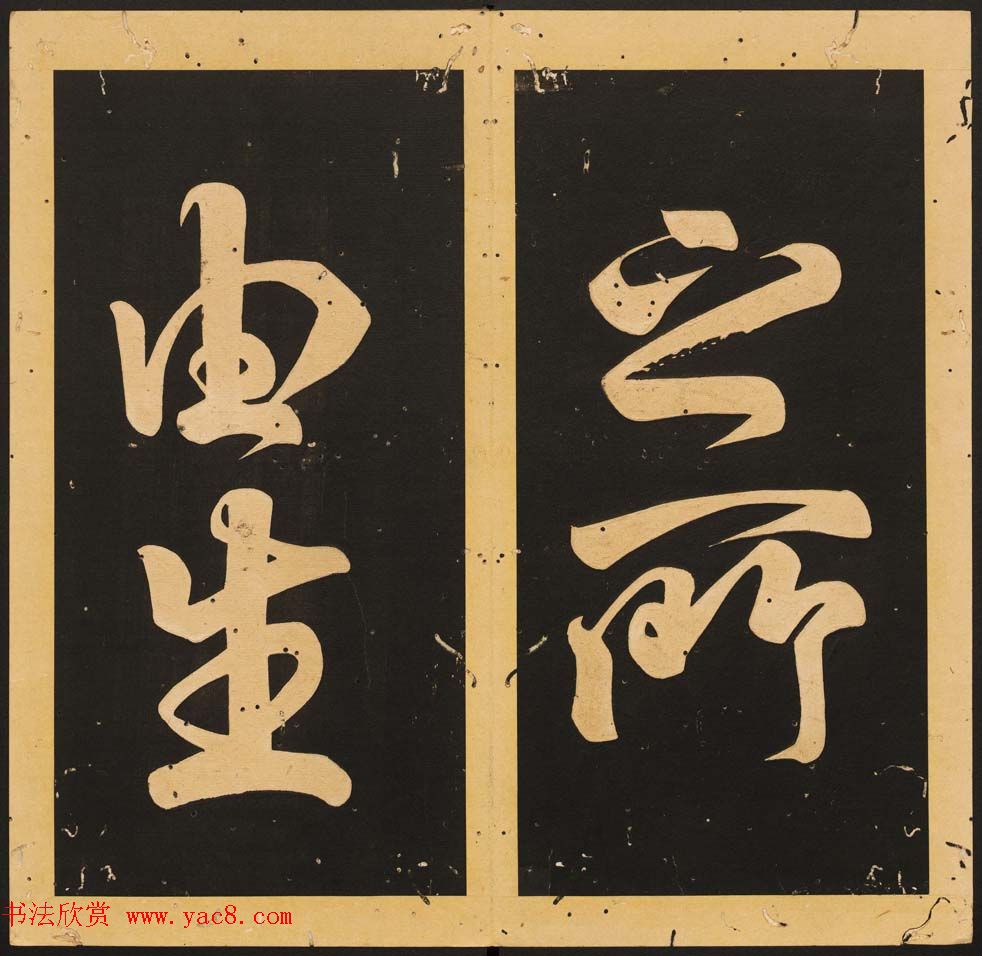 之所
由生
书法欣赏 www.yac8.com